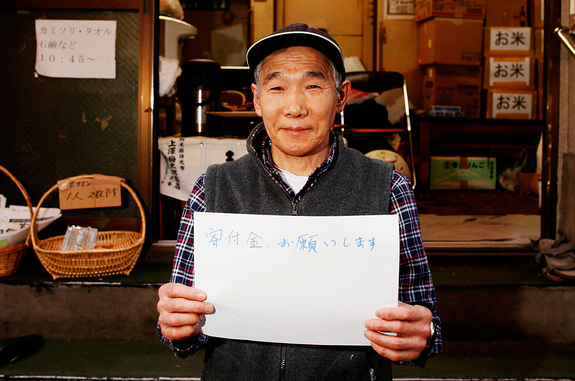 カミソリ・タオル
石鹸など
10:45〜
1人2枚です
お米
お米
お米
りんご
寄付金、お願いします